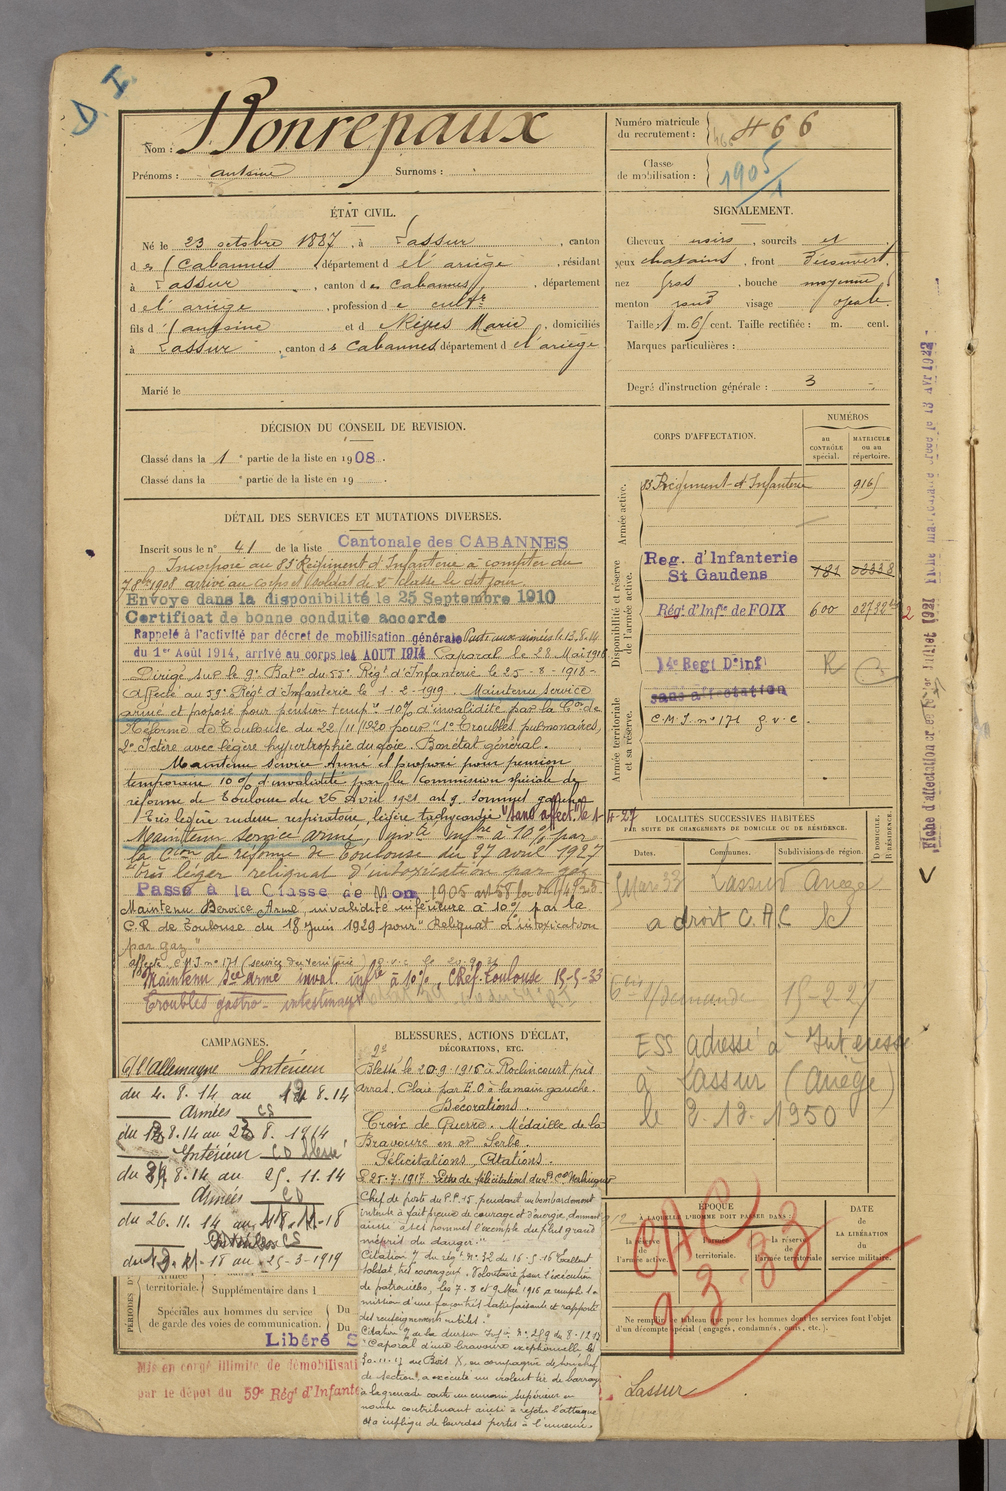 D. I.
Nom : Bonrepaux
Prénoms : antoine Surnoms :
Numéro matricule du recrutement : 466
Classe de mobilisation : 1905/1
ÉTAT CIVIL.
Né le 23 octobre 1887, à Lassur, canton
des Cabannes, département de l'ariège, résidant
à Lassur, canton des Cabannes, département
de l'ariège, profession de cultr
fils d'antoine et de Nègres Marie, domiciliés
à Lassur, canton des Cabannes département de l'ariège
Marié le
SIGNALEMENT.
Cheveux noirs, sourcils et
yeux chatains, front Découvert,
nez Gros, bouche moyenne,
menton rond visage ovale.
Taille : 1 m. 65 cent. Taille rectifiée : m. cent.
Marques particulières :
Degré d'instruction générale : 3
DÉCISION DU CONSEIL DE REVISION.
Classé dans la 1e partie de la liste en 1908.
Classé dans la e partie de la liste en 19
DÉTAIL DES SERVICES ET MUTATIONS DIVERSES.
Inscrit sous le n° 41 de la liste Cantonale des CABANNES
Incorporé au 83e Régiment d'Infanterie à compter du
7 8bre 1908 arrivé au corps et soldat de 2e classe le dit jour.
Envoyé dans la disponibilité le 25 Septembre 1910
Certificat de bonne conduite accordé
Rappelé à l'activité par décret de mobilisation générale Parti aux armées le 13.8.14
du 1er Août 1914, arrivé au corps le 4 AOUT 1914 Caporal le 28 Mai 1916
Dirigé sur le 9e Baton du 55e Régt d'Infanterie le 25-8-1918-
Affecté au 59e Régt d'Infanterie le 1-2-1919. Maintenu service
armé et proposé pour pension tempre 10% d'invalidité par la Con de
Réforme de Toulouse du 22/11/1920 pour "1° Troubles pulmonaires,
2° Ictère avec légère hypertrophie du foie. Bon état général.
Maintenu service Armé et proposé pour pension
temporaire 10% d'invalidité par la Commission spéciale de
réforme de Toulouse du 26 Avril 1921
Très légère rudesse respiratoire, légère tachycardie "Sans affect." le 1-4-27
Maintenu service armé, invté infre à 10% par
la Cion de réforme de Toulouse du 27 avril 1927
"Très léger reliquat d'intoxication par gaz
Passé à la Classe de Mon 1905
Maintenu Service Armé, invalidité inférieure à 10% par la
C.R. de Toulouse du 18 Juin 1929 pour "Reliquat d'intoxication
par gaz"
affecté C.M.I. n° 171 (service du territoire) g.v.c.
Maintenu sce armé inval. infre à 10%, CRéf. Toulouse 15-5-33
Troubles gastro-intestinaux
CORPS D'AFFECTATION.
NUMÉROS
au CONTRÔLE spécial.
MATRICULE ou au répertoire.
Armée active.
83 Régiment d'Infanterie 9165
Disponibilité et réserve de l'armée active.
Reg. d'Infanterie
St Gaudens
Régt d'Infie de FOIX 600
14e Regt D'inf R
sans affectation
Armée territoriale et sa réserve.
C.M.I. n° 171 g.v.c.
LOCALITÉS SUCCESSIVES HABITÉES
PAR SUITE DE CHANGEMENTS DE DOMICILE OU DE RÉSIDENCE.
Dates. Communes. Subdivisions de région. D DOMICILE. R RÉSIDENCE.
5 Mars 33 Lassur Ariège
a droit C.A.C.
demande 15-2-27
ESS adressé à Intéressé
à Lassur (Ariège)
le 2.12.1950
CAMPAGNES.
C/ l'allemagne Intérieur
du 4.8.14 au 12.8.14
Armées CS
du 13.8.14 au 23.8.1914
Intérieur CD blessé
du 24.8.14 au 25.11.14
Armées CD
du 26.11.14 au 11-18
CS
-18 au 25-3-1919
PÉRIODES
Armée territoriale. Supplémentaire dans l
Spéciales aux hommes du service Du
de garde des voies de communication. Du
Libéré S
Mis en congé illimité de démobilisati
par le dépôt du 59e Régt d'Infante
BLESSURES, ACTIONS D'ÉCLAT,
DÉCORATIONS, ETC.
Blessé le 20.9.1916 à Roclincourt près
Arras. Plaie par E.O à la main gauche.
Décorations.
Croix de Guerre. Médaille de la
Bravoure en or Serbe.
Félicitations, Citations.
25.7.1917.
Chef de poste du P.P. 15, pendant un bombardement
intense a fait preuve de courage et d'énergie, donnant
ainsi à ses hommes l'exemple du plus grand
mépris du danger."
Citation du régt N° 32 du 16.5.16 Excellent
soldat, très courageux. Volontaire pour l'exécution
de patrouilles, les 7.8 et 9 Mai 1916 a rempli la
mission d'une façon très satisfaisante et rapporté
des renseignements utiles."
Citation de la division Infie N° 289 du 8.12.17
"Caporal d'une bravoure exceptionnelle le
30.11.17 au Bois X, en compagnie de son chef
de section, a exécuté un violent tir de barrage
à la grenade contre un ennemi supérieur en
nombre contribuant ainsi à rejeter l'attaque
et a infligé de lourdes pertes à l'ennemi.
ÉPOQUE
À LAQUELLE L'HOMME DOIT PASSER DANS :
la réserve de l'armée active. l'armée territoriale. la réserve de l'armée territoriale
DATE DE LA LIBÉRATION du service militaire.
CAC
9-3-33
Ne remplir ce tableau que pour les hommes dont les services font l'objet
d'un décompte spécial (engagés, condamnés, omis, etc.).
Lassur